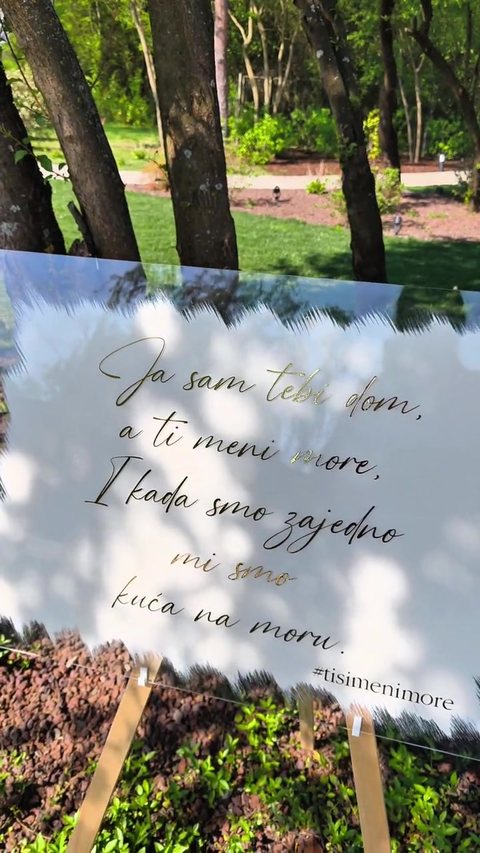 Ja sam tebi dom,
a ti meni more,
I kada smo zajedno
mi smo
kuća na moru.
#tisimenimore